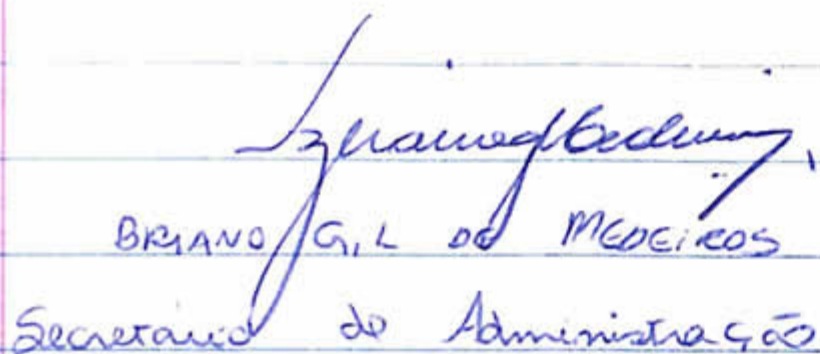 BRIANO GIL DE MEDEIROS
Secretario de Administração